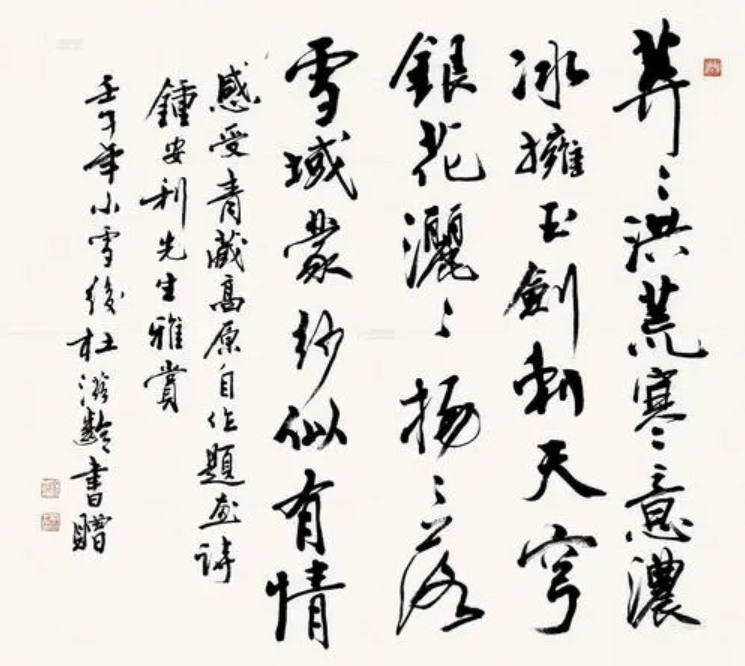 莽々洪荒寒意濃
冰擁玉劍刺天穹
銀花灑々揚々落
雪域蒙紗似有情
感受青藏高原自作題畫詩
鍾安利先生雅賞
壬午年小雪後杜滋齡書贈